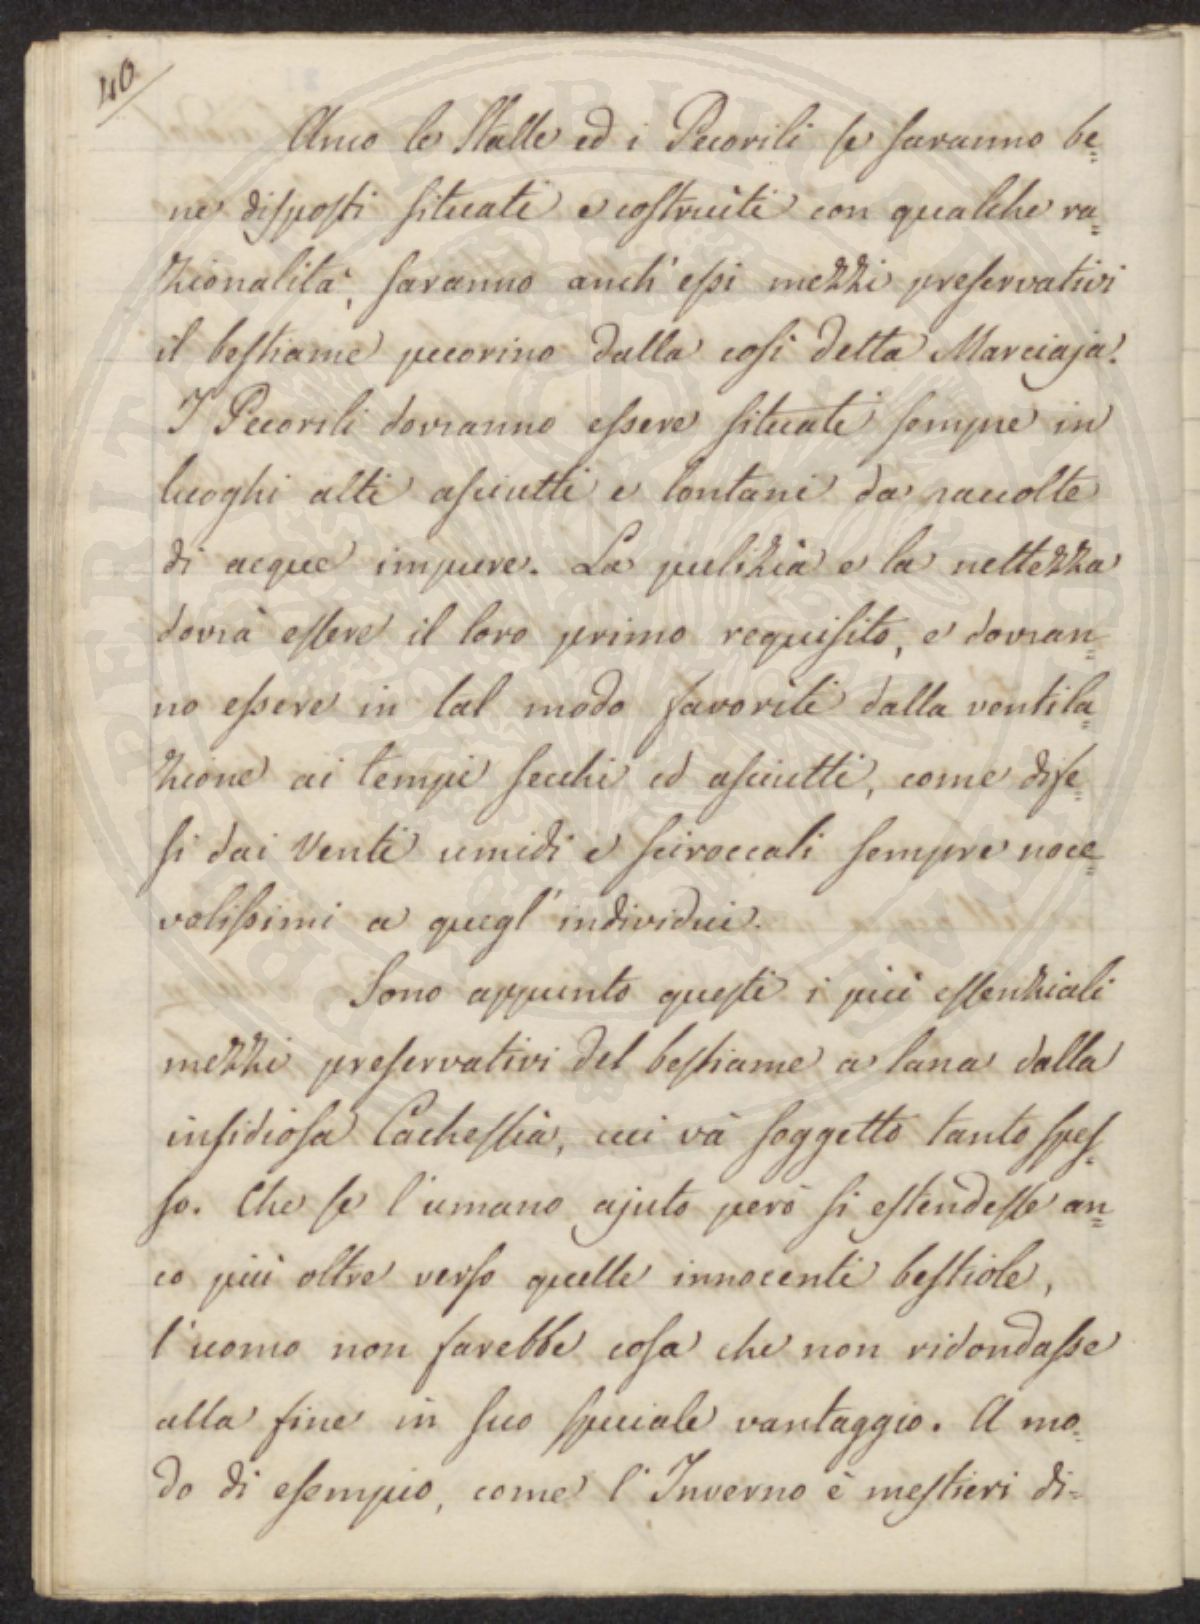 40
Anco le Stalle ed i Pecorili se saranno be=
ne disposti situati e costruiti con qualche ra=
zionalità, saranno anch'essi mezzi preservativi
il bestiame pecorino dalla così detta Marciaja.
I Pecorili dovranno essere situati sempre in
luoghi alti asciutti e lontani da raccolte
di acque impure. La pulizia e la nettezza
dovrà essere il loro primo requisito, e dovran=
no essere in tal modo favoriti dalla ventila=
zione ai tempi secchi ed asciutti, come dife=
si dai Venti umidi e sciroccali sempre noce=
volissimi a quegl'individui.
Sono appunto questi i più essenziali
mezzi preservativi del bestiame a lana dalla
insidiosa Cachessia, cui và soggetto tanto spes=
so. Che se l'umano ajuto però si estendesse an=
co più oltre verso quelle innocenti bestiole,
l'uomo non farebbe cosa che non ridondasse
alla fine in suo speciale vantaggio. A mo=
do di esempio, come l'Inverno è mestieri di=